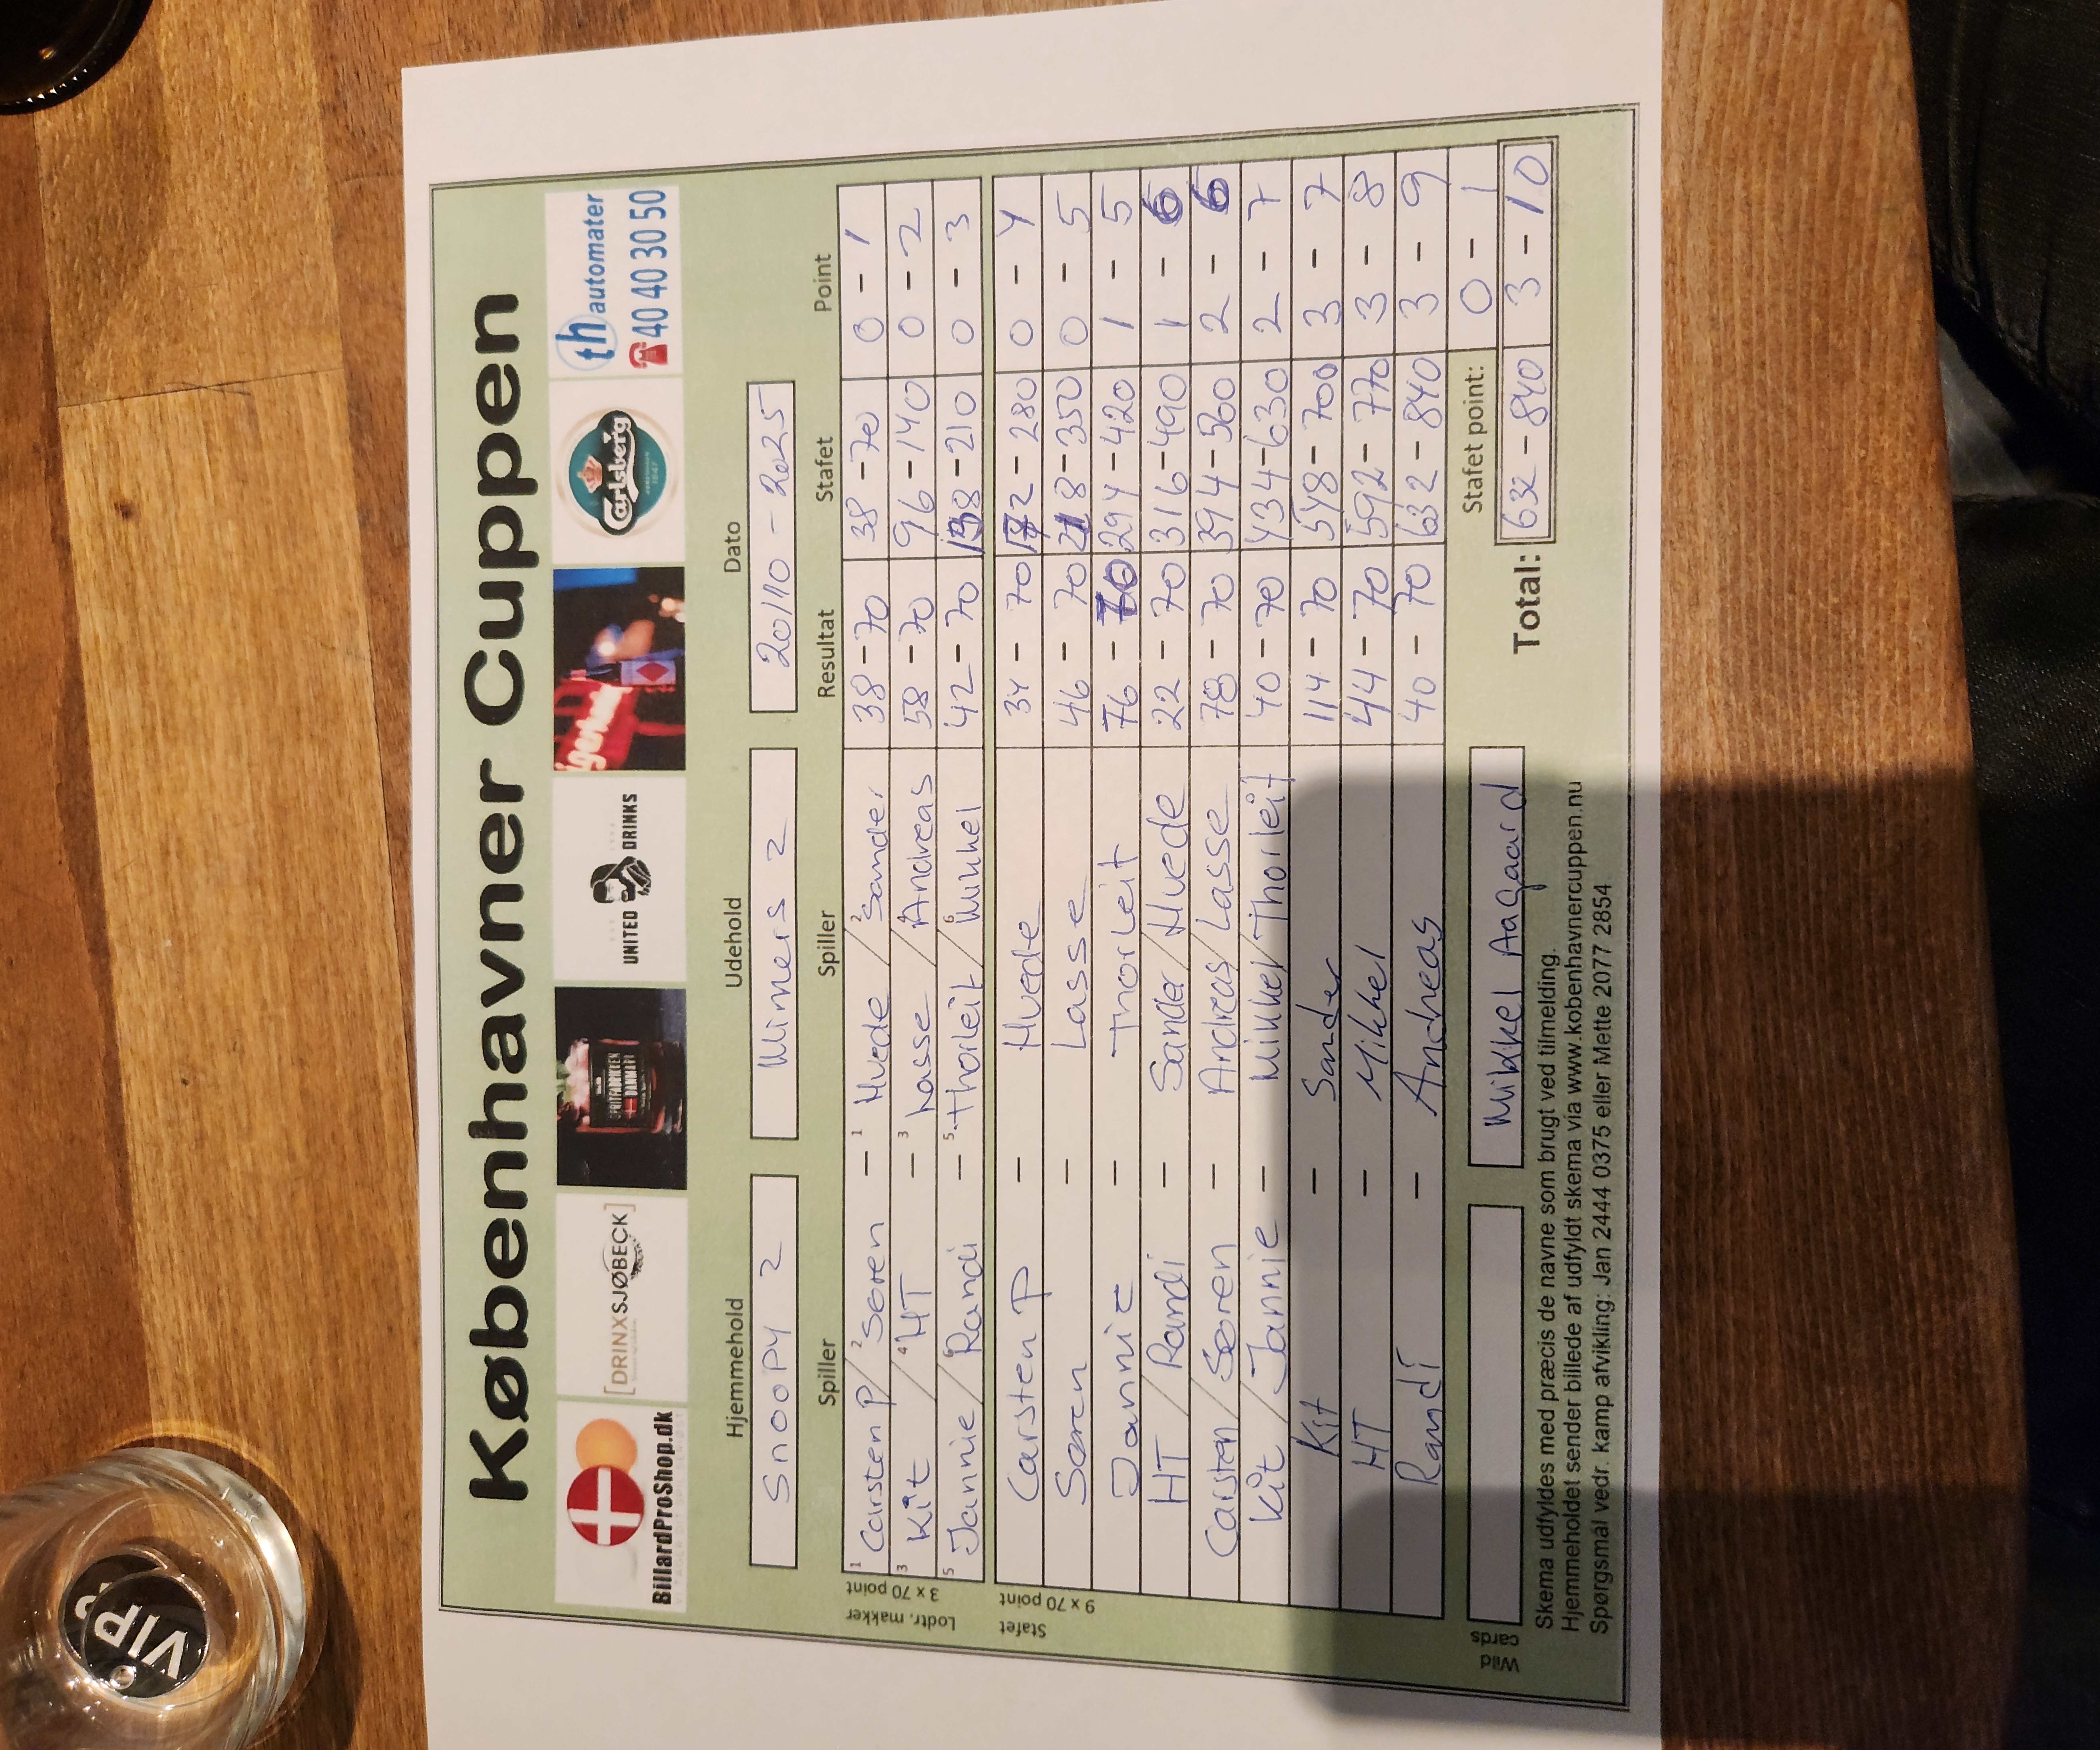 Københavner Cuppen
BillardProShop.dk
[DRINXSJØBECK]
SPRITFABRIKKEN DANMARK
UNITED DRINKS
Carlsberg
th automater
40 40 30 50
Hjemmehold Udehold Dato
Snoopy 2 Mimers 2 20/10-2025
Spiller Spiller Resultat Stafet Point
Lodtr. makker 3 x 70 point
1 Carsten P / 2 Søren – 1 Hvede / 2 Sander 38 - 70 38 - 70 0 - 1
3 Kit / 4 HT – 3 Lasse / 4 Andreas 58 - 70 96 - 140 0 - 2
5 Jannie / 6 Randi – 5 Thorleit / 6 Mikkel 42 - 70 138 - 210 0 - 3
Stafet 9 x 70 point
Carsten P – Hvede 34 - 70 172 - 280 0 - 4
Søren – Lasse 46 - 70 218 - 350 0 - 5
Jannie – Thorleit 76 - 70 294 - 420 1 - 5
HT / Randi – Sander / Hvede 22 - 70 316 - 490 1 - 6
Carsten / Søren – Andreas / Lasse 78 - 70 394 - 560 2 - 6
Kit / Jannie – Mikkel / Thorleit 40 - 70 434 - 630 2 - 7
Kit – Sander 114 - 70 548 - 700 3 - 7
HT – Mikkel 44 - 70 592 - 770 3 - 8
Randi – Andreas 40 - 70 632 - 840 3 - 9
Wild cards Mikkel Aagaard Stafet point: 0 - 1
Total: 632 - 840 3 - 10
Skema udfyldes med præcis de navne som brugt ved tilmelding.
Hjemmeholdet sender billede af udfyldt skema via www.kobenhavnercuppen.nu
Spørgsmål vedr. kamp afvikling: Jan 2444 0375 eller Mette 2077 2854
VIP